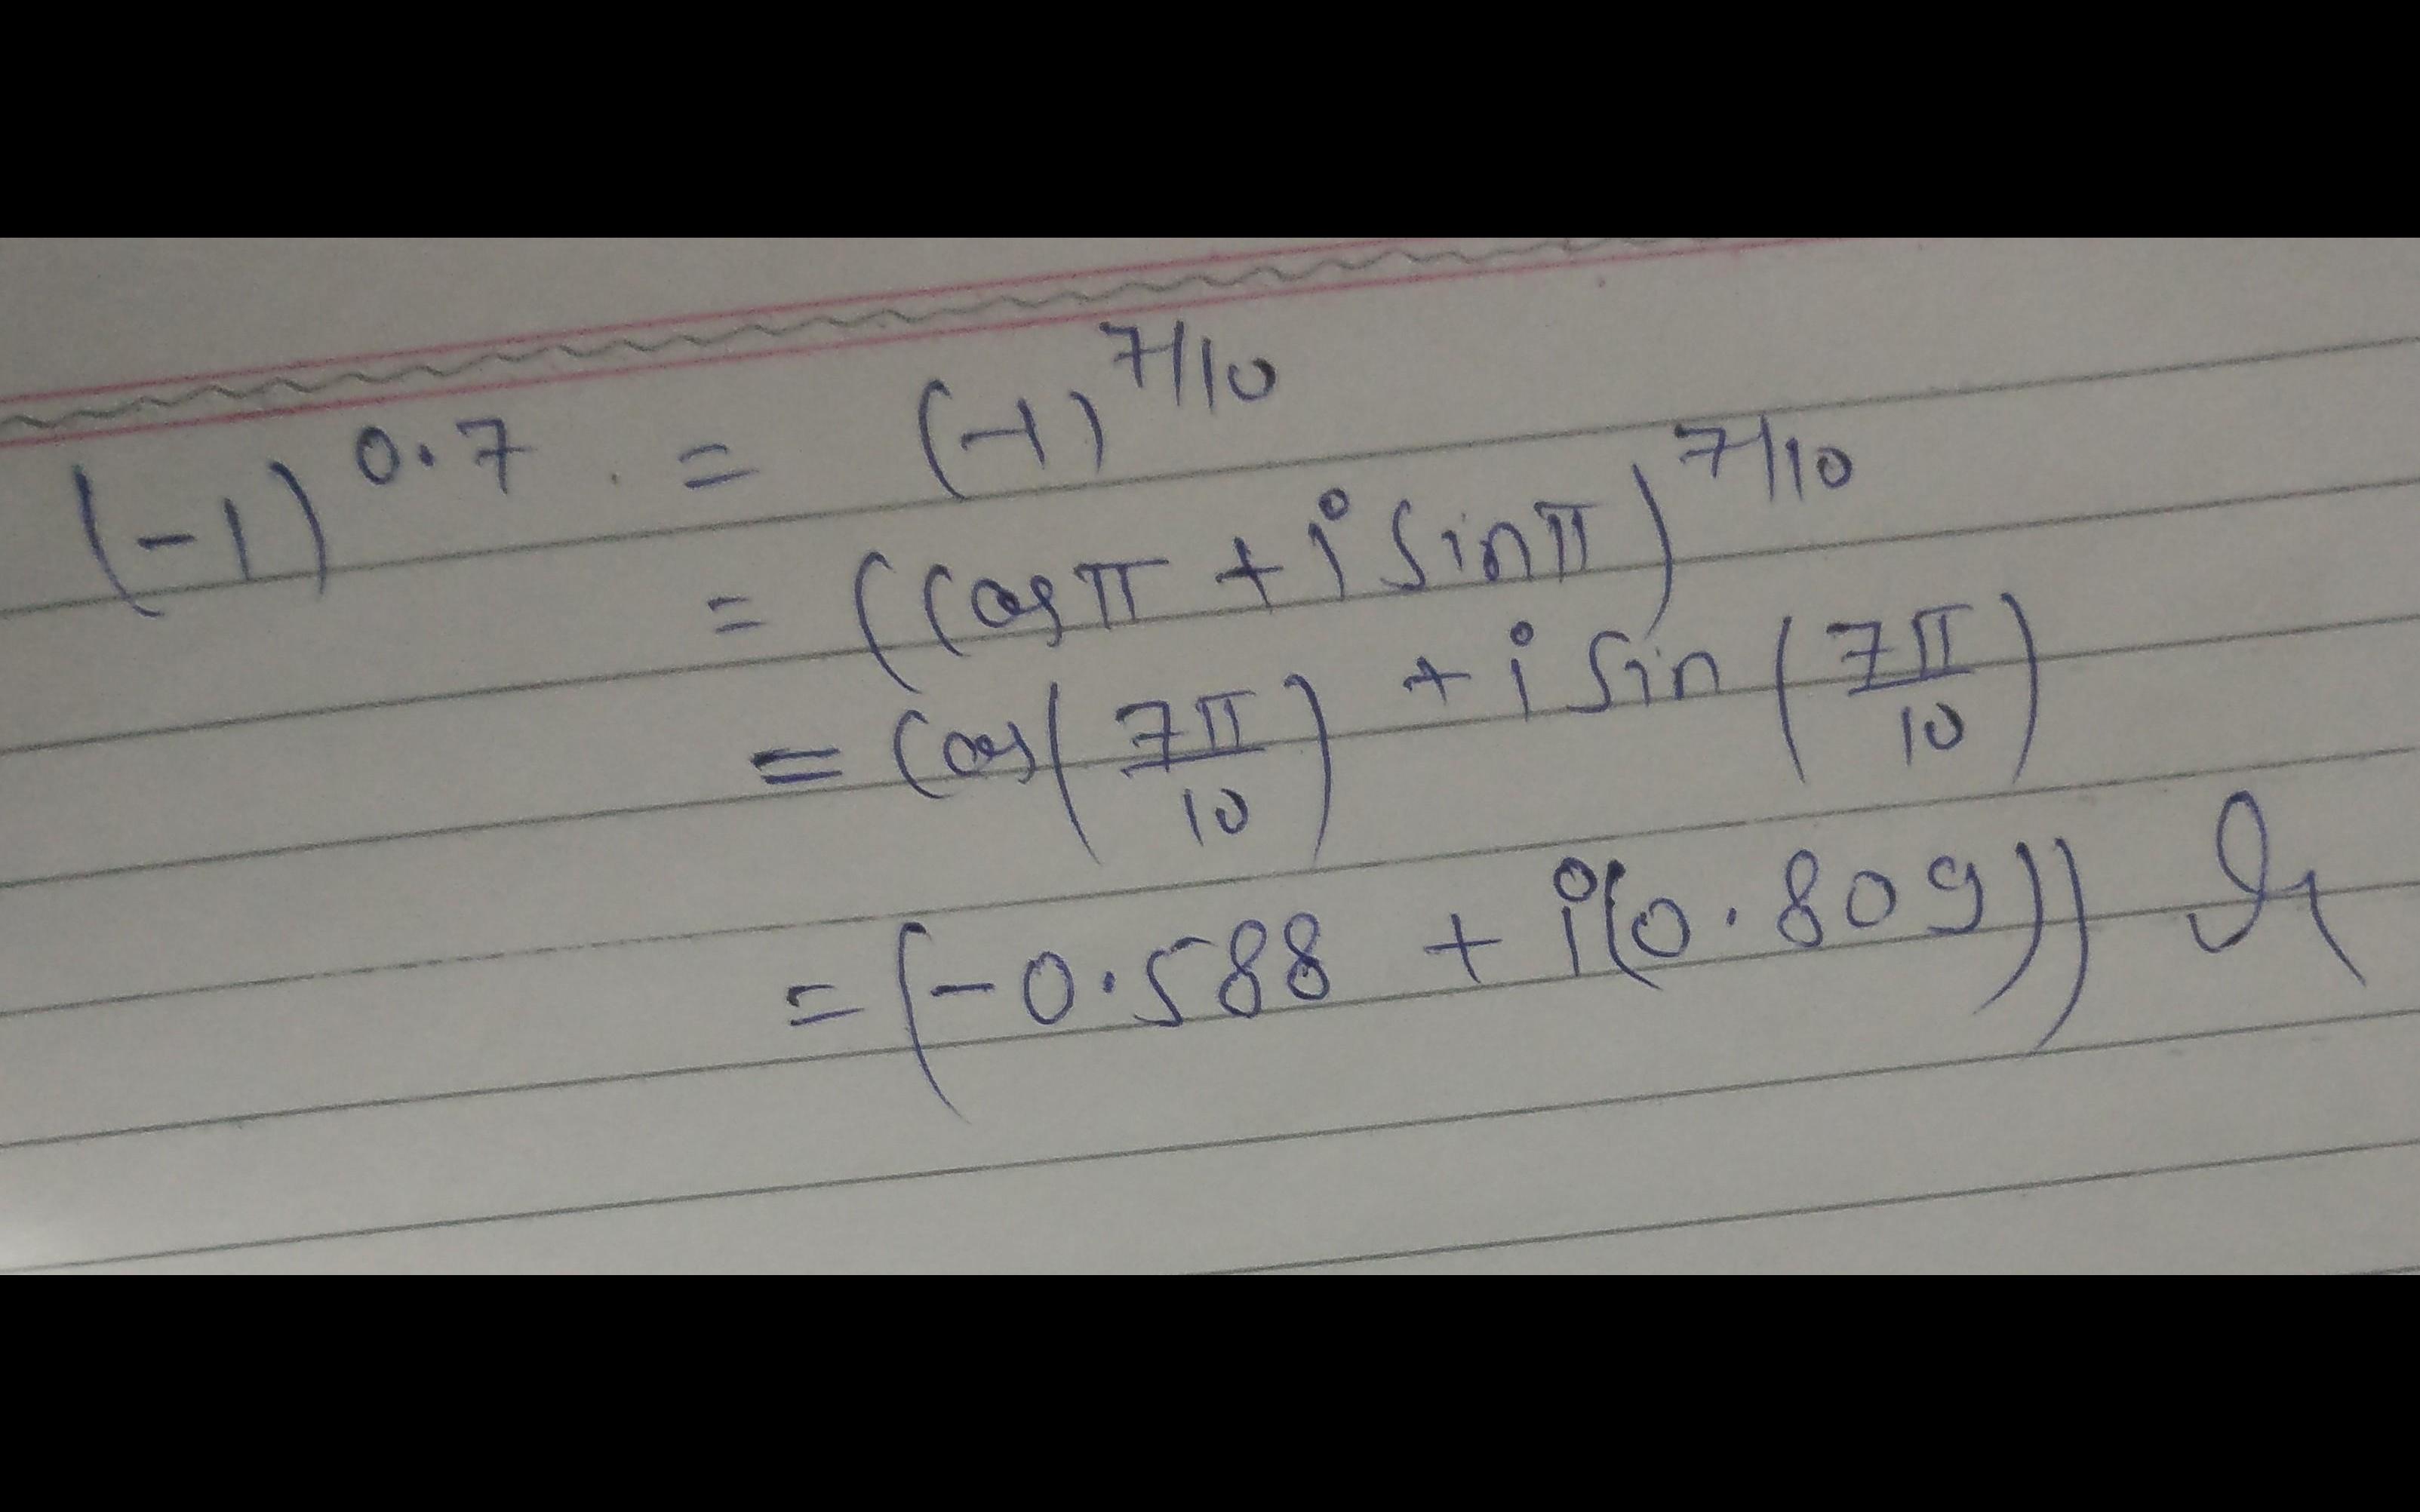 (-1)^0.7 = (-1)^7/10
= (cos π + i sin π)^7/10
= cos(7π/10) + i sin(7π/10)
= (-0.588 + i(0.809))